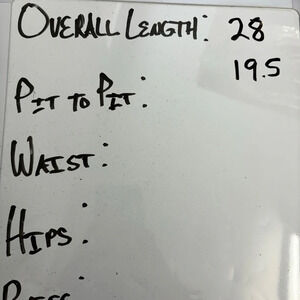 OVERALL LENGTH: 28
19.5
PIT TO PIT:
WAIST:
HIPS: